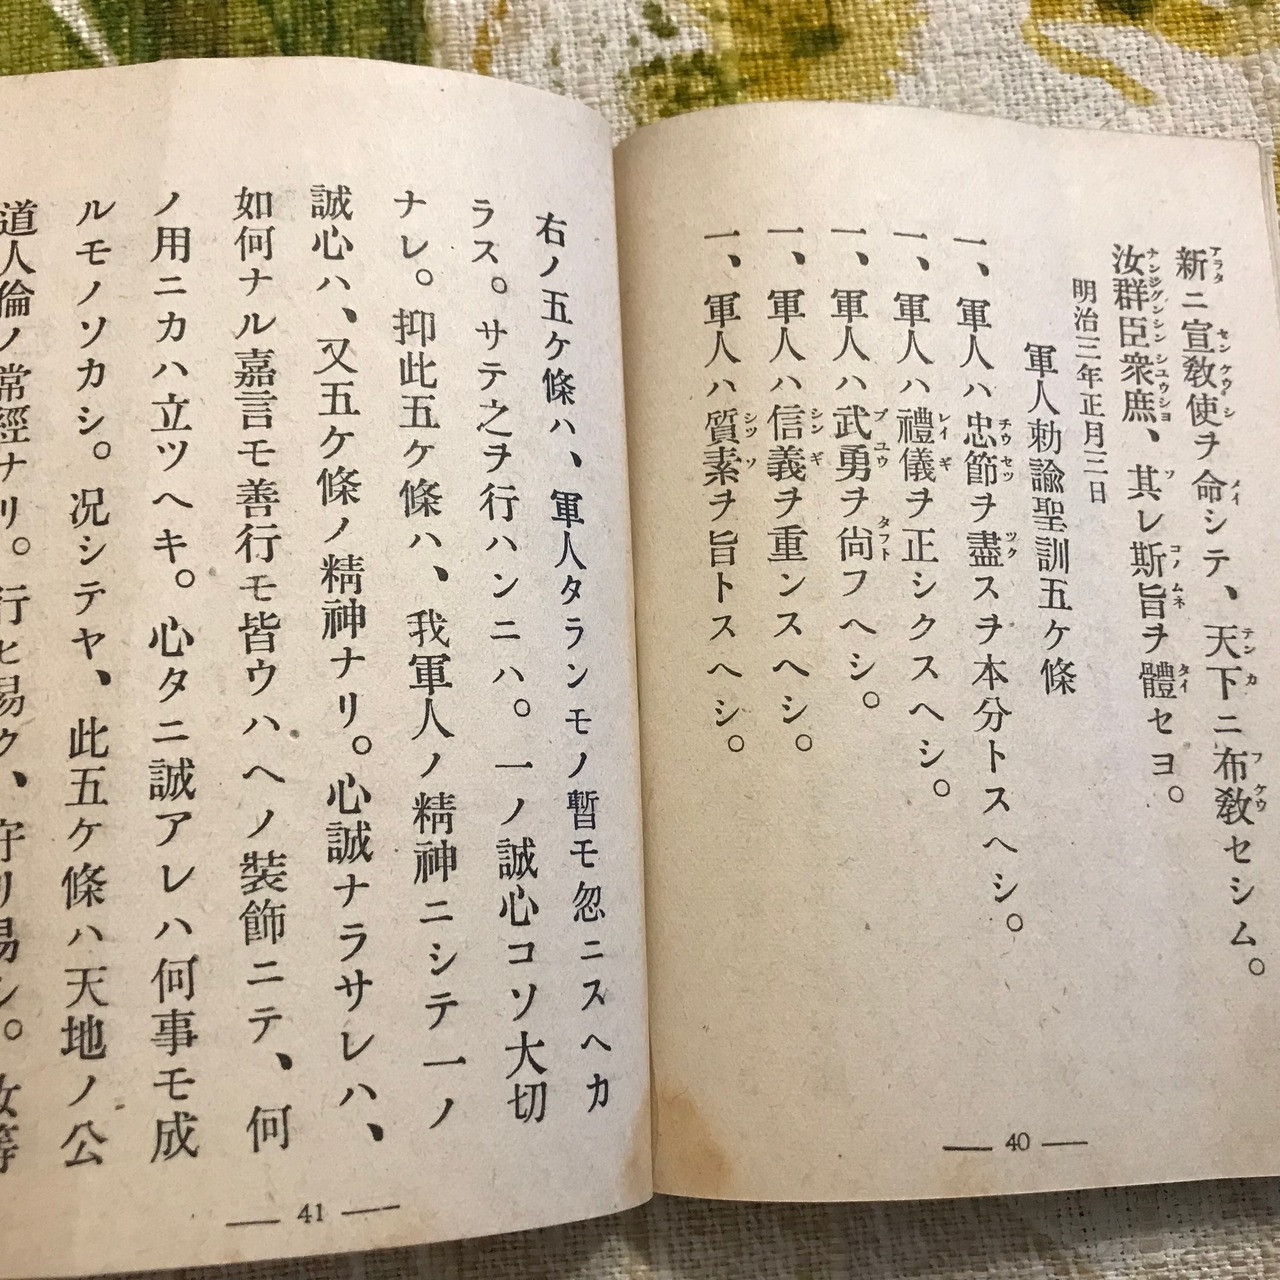 新ニ宣敎使ヲ命シテ、天下ニ布敎セシム。
汝群臣衆庶、其レ斯旨ヲ體セヨ。
明治三年正月三日
軍人勅諭聖訓五ケ條
一、軍人ハ忠節ヲ盡スヲ本分トスヘシ。
一、軍人ハ禮儀ヲ正シクスヘシ。
一、軍人ハ武勇ヲ尙フヘシ。
一、軍人ハ信義ヲ重ンスヘシ。
一、軍人ハ質素ヲ旨トスヘシ。
— 40 —
右ノ五ケ條ハ、軍人タランモノ暫モ忽ニスヘカ
ラス。サテ之ヲ行ハンニハ。一ノ誠心コソ大切
ナレ。抑此五ケ條ハ、我軍人ノ精神ニシテ一ノ
誠心ハ、又五ケ條ノ精神ナリ。心誠ナラサレハ、
如何ナル嘉言モ善行モ皆ウハヘノ裝飾ニテ、何
ノ用ニカハ立ツヘキ。心タニ誠アレハ何事モ成
ルモノソカシ。况シテヤ、此五ケ條ハ天地ノ公
道人倫ノ常經ナリ。行ヒ易ク、守リ易シ。汝等
— 41 —